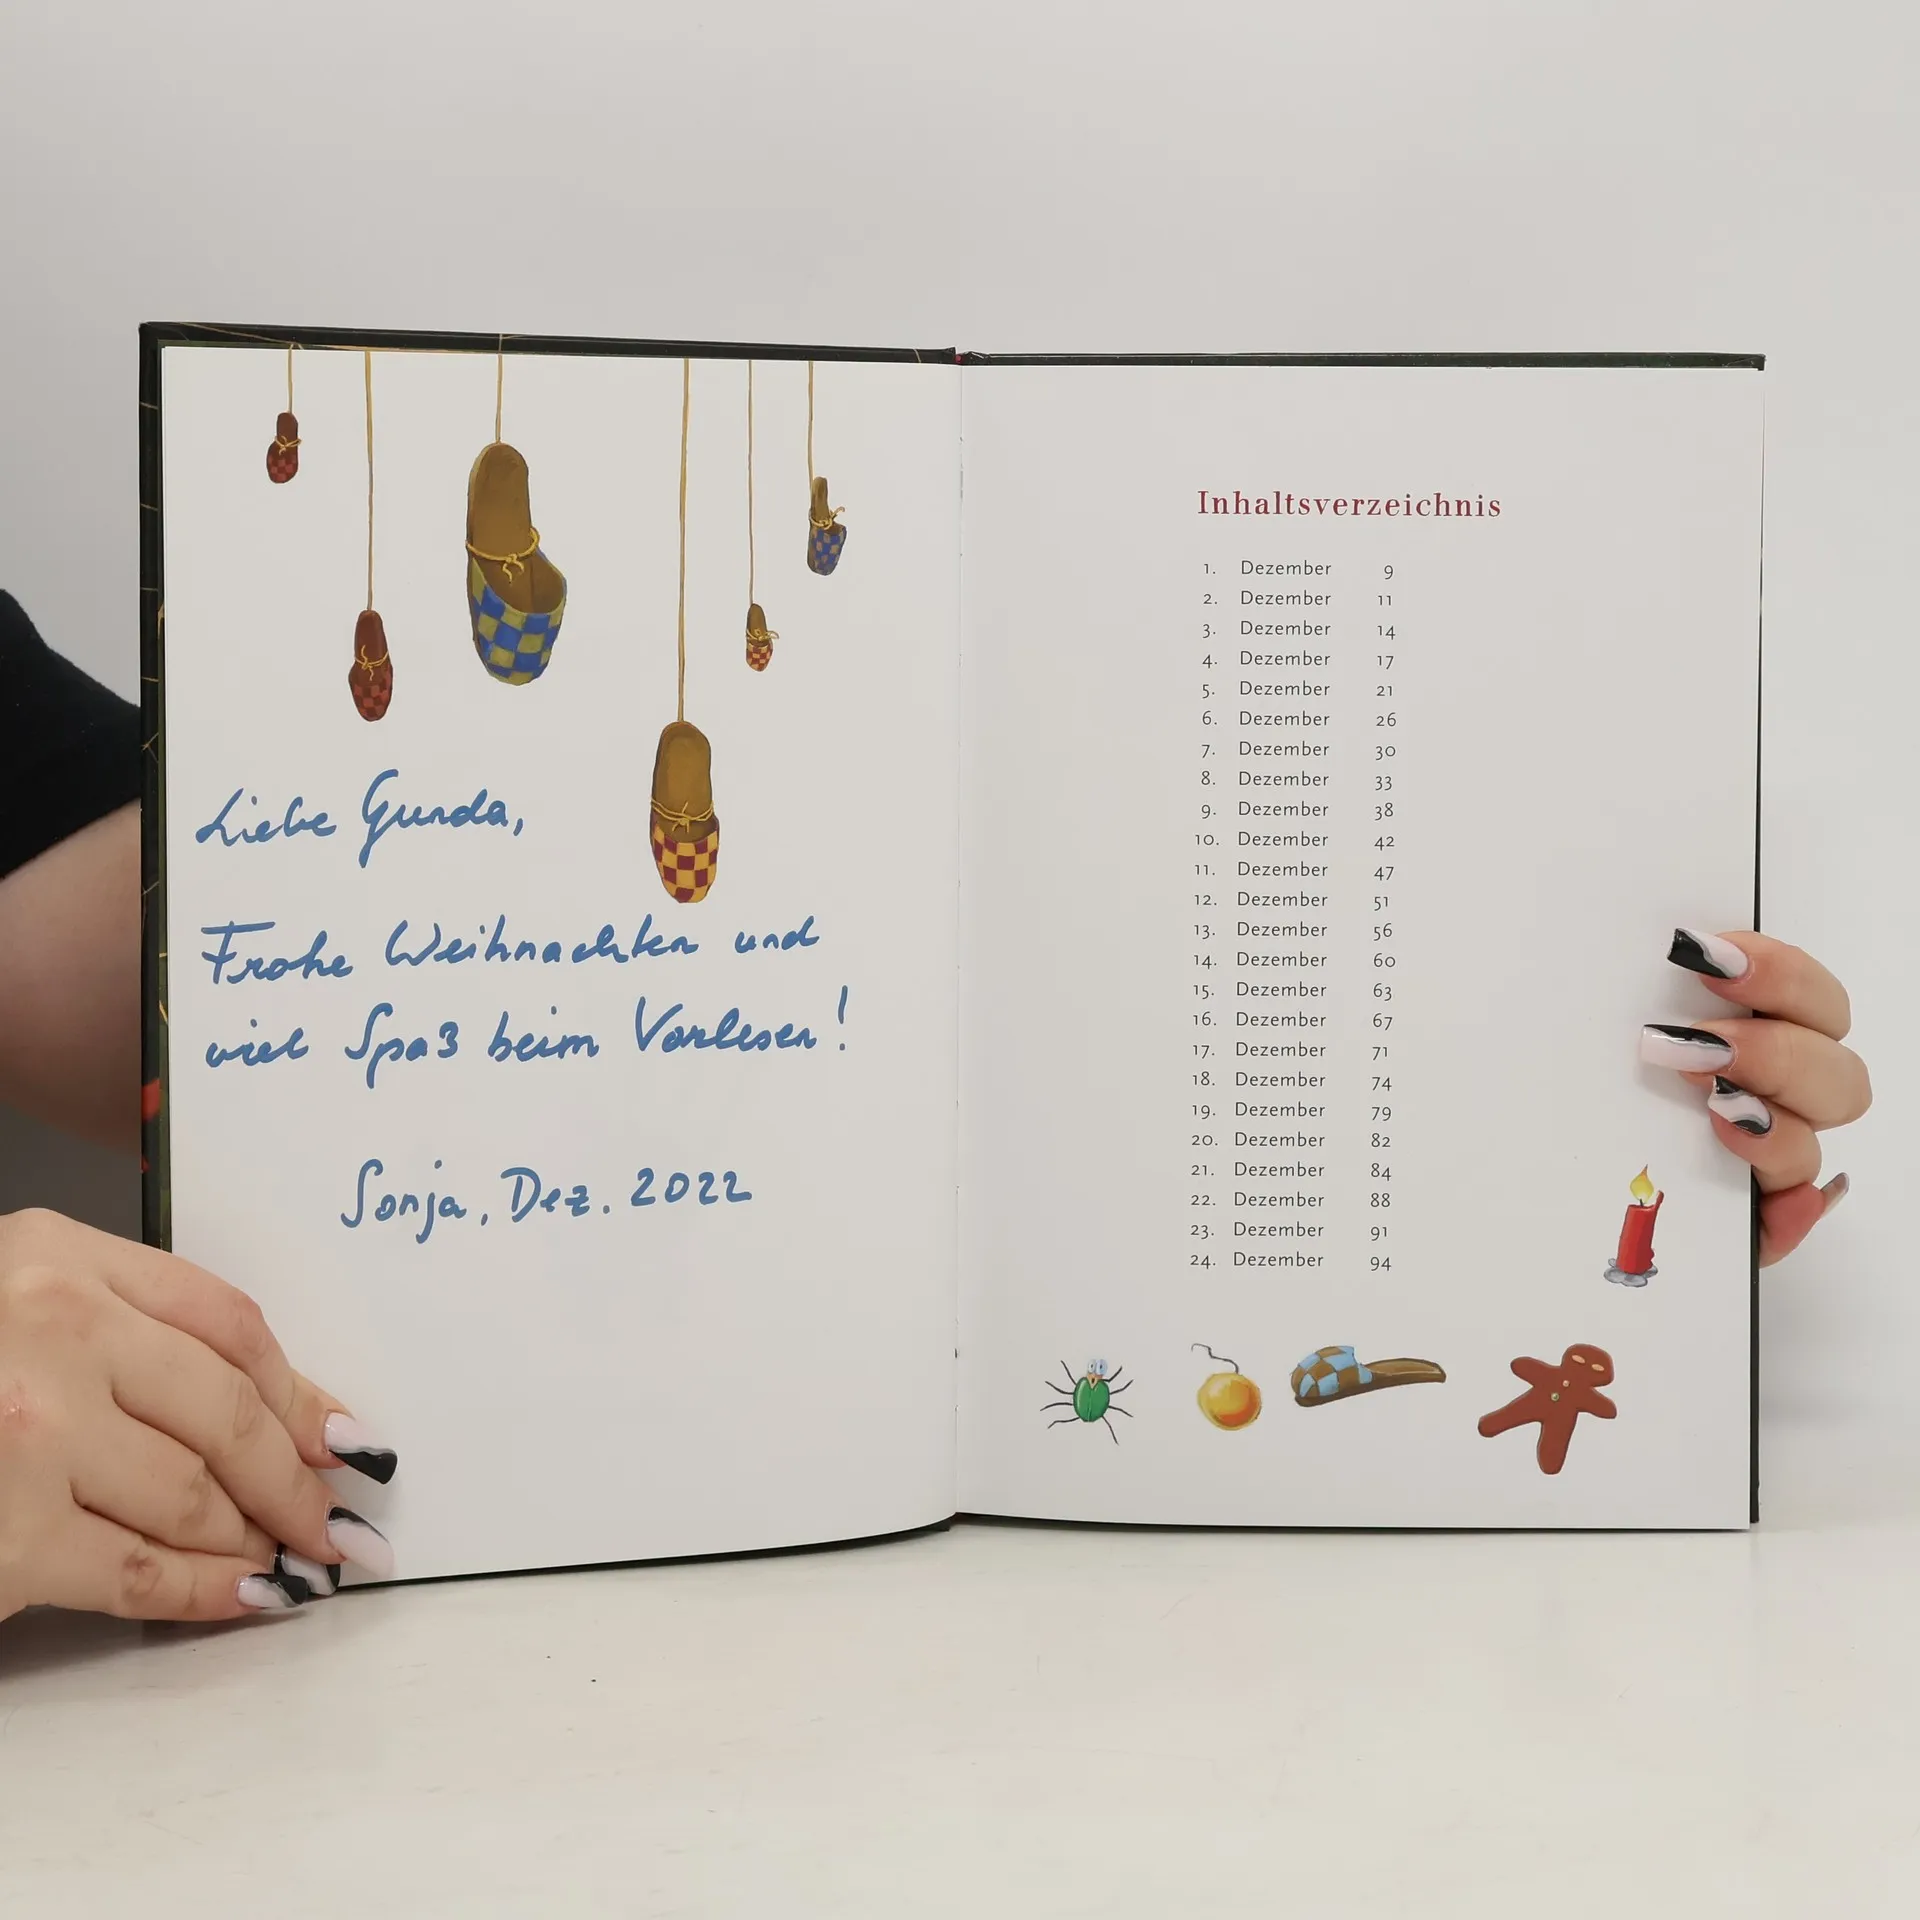 Liebe Gunda,
Frohe Weihnachten und
viel Spaß beim Vorlesen!
Sonja, Dez. 2022
Inhaltsverzeichnis
1. Dezember 9
2. Dezember 11
3. Dezember 14
4. Dezember 17
5. Dezember 21
6. Dezember 26
7. Dezember 30
8. Dezember 33
9. Dezember 38
10. Dezember 42
11. Dezember 47
12. Dezember 51
13. Dezember 56
14. Dezember 60
15. Dezember 63
16. Dezember 67
17. Dezember 71
18. Dezember 74
19. Dezember 79
20. Dezember 82
21. Dezember 84
22. Dezember 88
23. Dezember 91
24. Dezember 94